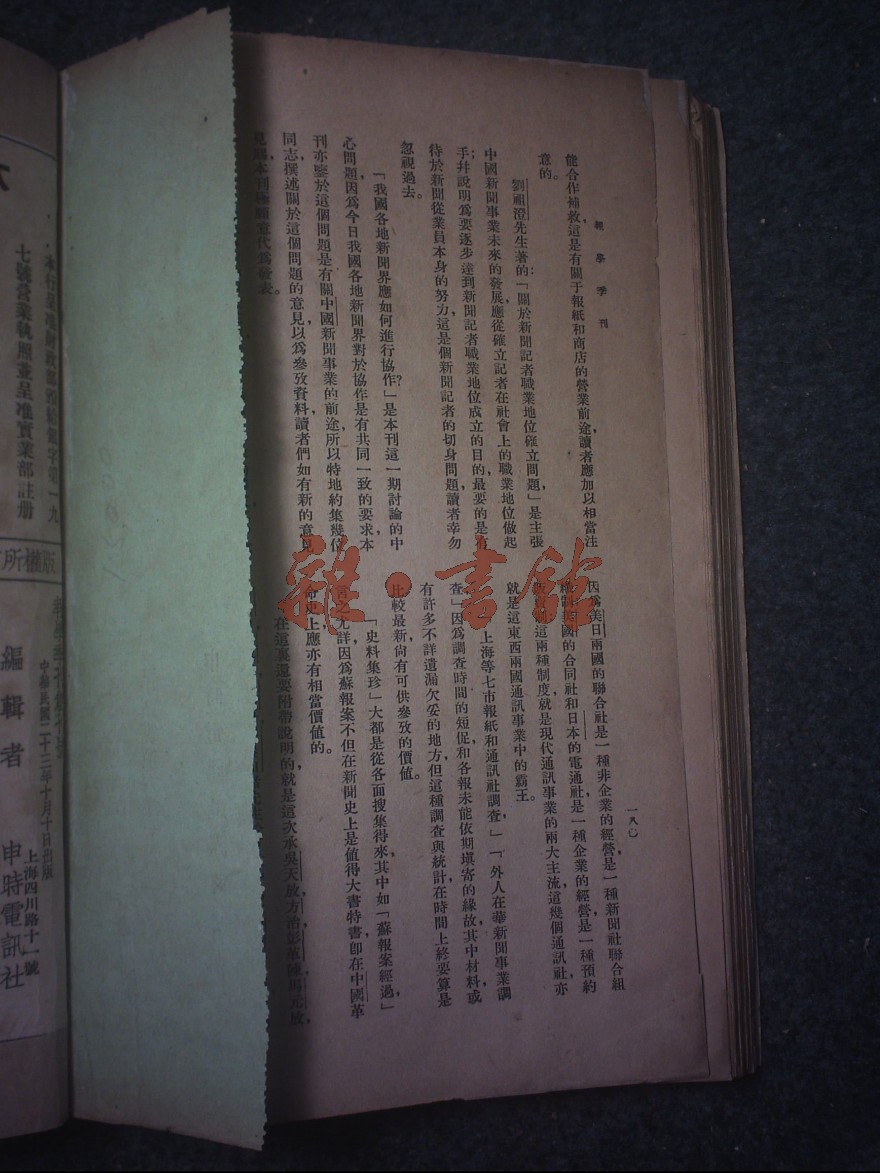 報學季刊
一八〇
能合作補救這是有關于報紙和商店的營業前途讀者應加以相當注
意的。
劉祖澄先生著的「關於新聞記者職業地位確立問題」是主張
中國新聞事業未來的發展應從確立記者在社會上的職業地位做起
手幷說明爲要逐步達到新聞記者職業地位成立的目的最要的是有
待於新聞從業員本身的努力這是個新聞記者的切身問題讀者幸勿
忽視過去。
「我國各地新聞界應如何進行協作?」是本刊這一期討論的中
心問題因爲今日我國各地新聞界對於協作是有共同一致的要求本
刊亦鑒於這個問題是有關中國新聞事業的前途所以特地約集幾位
同志撰述關於這個問題的意見以爲參攷資料讀者們如有新的意見
見賜本刊極願意代爲發表。
因爲美日兩國的聯合社是一種非企業的經營是一種新聞社聯合組
美國的合同社和日本的電通社是一種企業的經營是一種預約
這兩種制度就是現代通訊事業的兩大主流這幾個通訊社亦
就是這東西兩國通訊事業中的霸王。
上海等七市報紙和通訊社調查」「外人在華新聞事業調
查」因爲調查時間的短促和各報未能依期填寄的緣故其中材料或
有許多不詳遺漏欠妥的地方但這種調查與統計在時間上終要算是
比較最新尙有可供參攷的價値。
「史料集珍」大都是從各面搜集得來其中如「蘇報案經過」
之尤詳因爲蘇報案不但在新聞史上是値得大書特書卽在中國革
命史上應亦有相當價値的。
在這裏還要附帶說明的就是這次承吳天放方治彭革陳馬元放
雜·書館
七號營業執照並呈准實業部註册
版權所
中華民國二十三年十月十日出版
編輯者
上海四川路十一號
申時電訊社